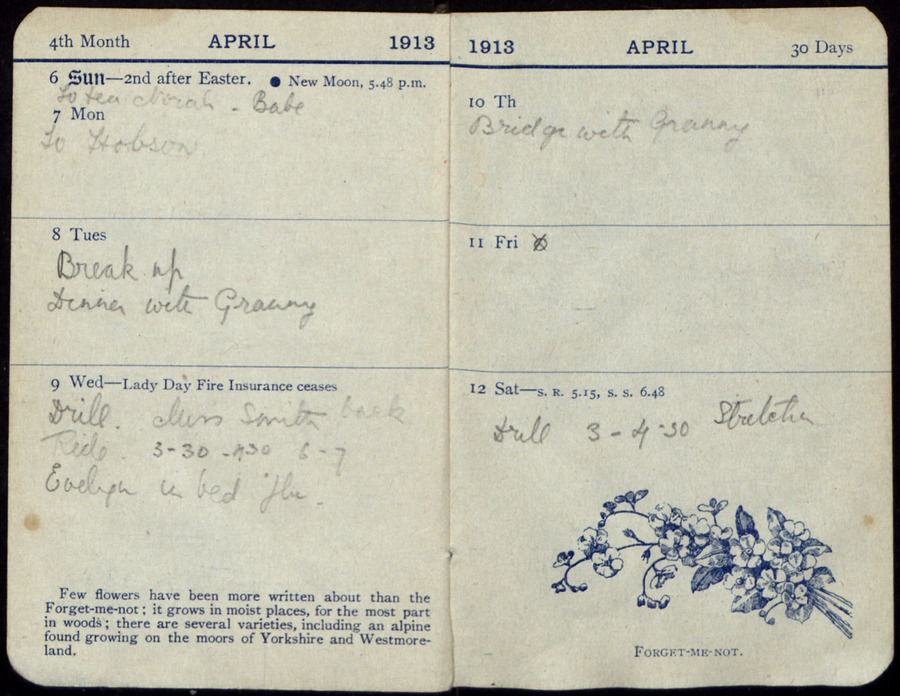 4th Month APRIL 1913
6 Sun—2nd after Easter. ● New Moon, 5.48 p.m.
To tea Norah - Babe
7 Mon
To Hobson
8 Tues
Break up
Dinner with Granny
9 Wed—Lady Day Fire Insurance ceases
Drill. Miss Smith back
Ride. 3-30 - 4.30 6-7
Evelyn in bed 'flu.
Few flowers have been more written about than the
Forget-me-not; it grows in moist places, for the most part
in woods; there are several varieties, including an alpine
found growing on the moors of Yorkshire and Westmore-
land.
1913 APRIL 30 Days
10 Th
Bridge with Granny
11 Fri
12 Sat—S. R. 5.15, S. S. 6.48
Drill 3-4-30 Stretcher
FORGET-ME-NOT.